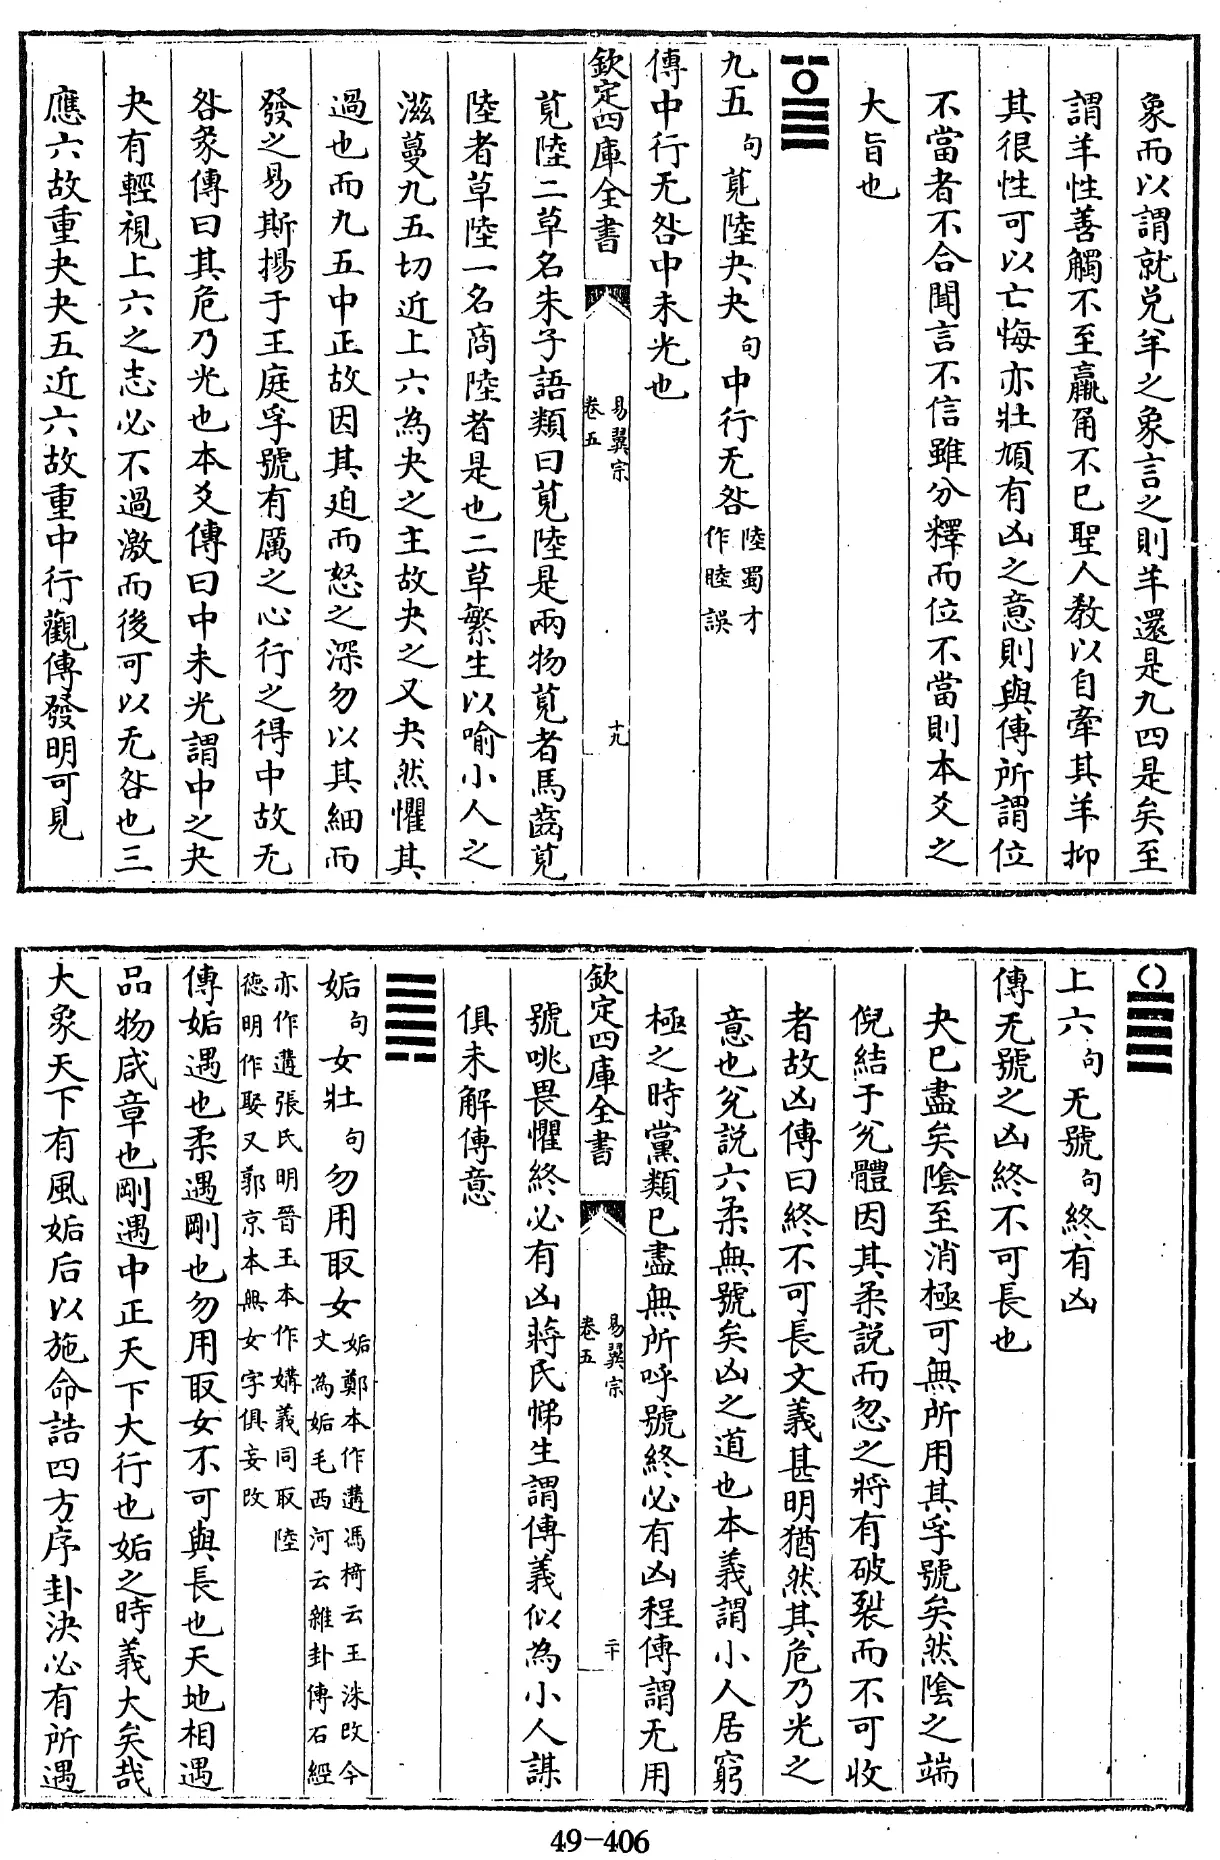 象而以謂就兑羊之象言之則羊還是九四是矣至
謂羊性善觸不至羸角不已聖人敎以自牽其羊抑
其很性可以亡悔亦壯頄有凶之意則與傳所謂位
不當者不合聞言不信雖分釋而位不當則本爻之
大旨也
九五句莧陸夬夬句中行无咎陸蜀才
作睦誤
傳中行无咎中未光也
欽定四庫全書
易翼宗
卷五
十九
莧陸二草名朱子語類曰莧陸是兩物莧者馬齒莧
陸者草陸一名商陸者是也二草繁生以喻小人之
滋蔓九五切近上六為夬之主故夬之又夬然懼其
過也而九五中正故因其廹而怒之深勿以其細而
發之易斯揚于王庭孚號有厲之心行之得中故无
咎彖傳曰其危乃光也本爻傳曰中未光謂中之夬
夬有輕視上六之志必不過激而後可以无咎也三
應六故重夬夬五近六故重中行觀傳發明可見
上六句无號句終有凶
傳无號之凶終不可長也
夬已盡矣陰至消極可無所用其孚號矣然陰之端
倪結于兊體因其柔說而忽之將有破裂而不可收
者故凶傳曰終不可長文義甚明猶然其危乃光之
意也兊説六柔無號矣凶之道也本義謂小人居窮
極之時黨類已盡無所呼號終必有凶程傳謂无用
欽定四庫全書
易翼宗
卷五
二十
號咷畏懼終必有凶蔣氏悌生謂傳義似為小人謀
俱未解傳意
姤句女壯句勿用取女姤鄭本作遘馮椅云王洙改今
文為姤毛西河云雜卦傳石經
亦作遘張氏明晉玉本作媾義同取陸
德明作娶又郭京本無女字俱妄改
傳姤遇也柔遇剛也勿用取女不可與長也天地相遇
品物咸章也剛遇中正天下大行也姤之時義大矣哉
大象天下有風姤后以施命誥四方序卦決必有所遇
49-406